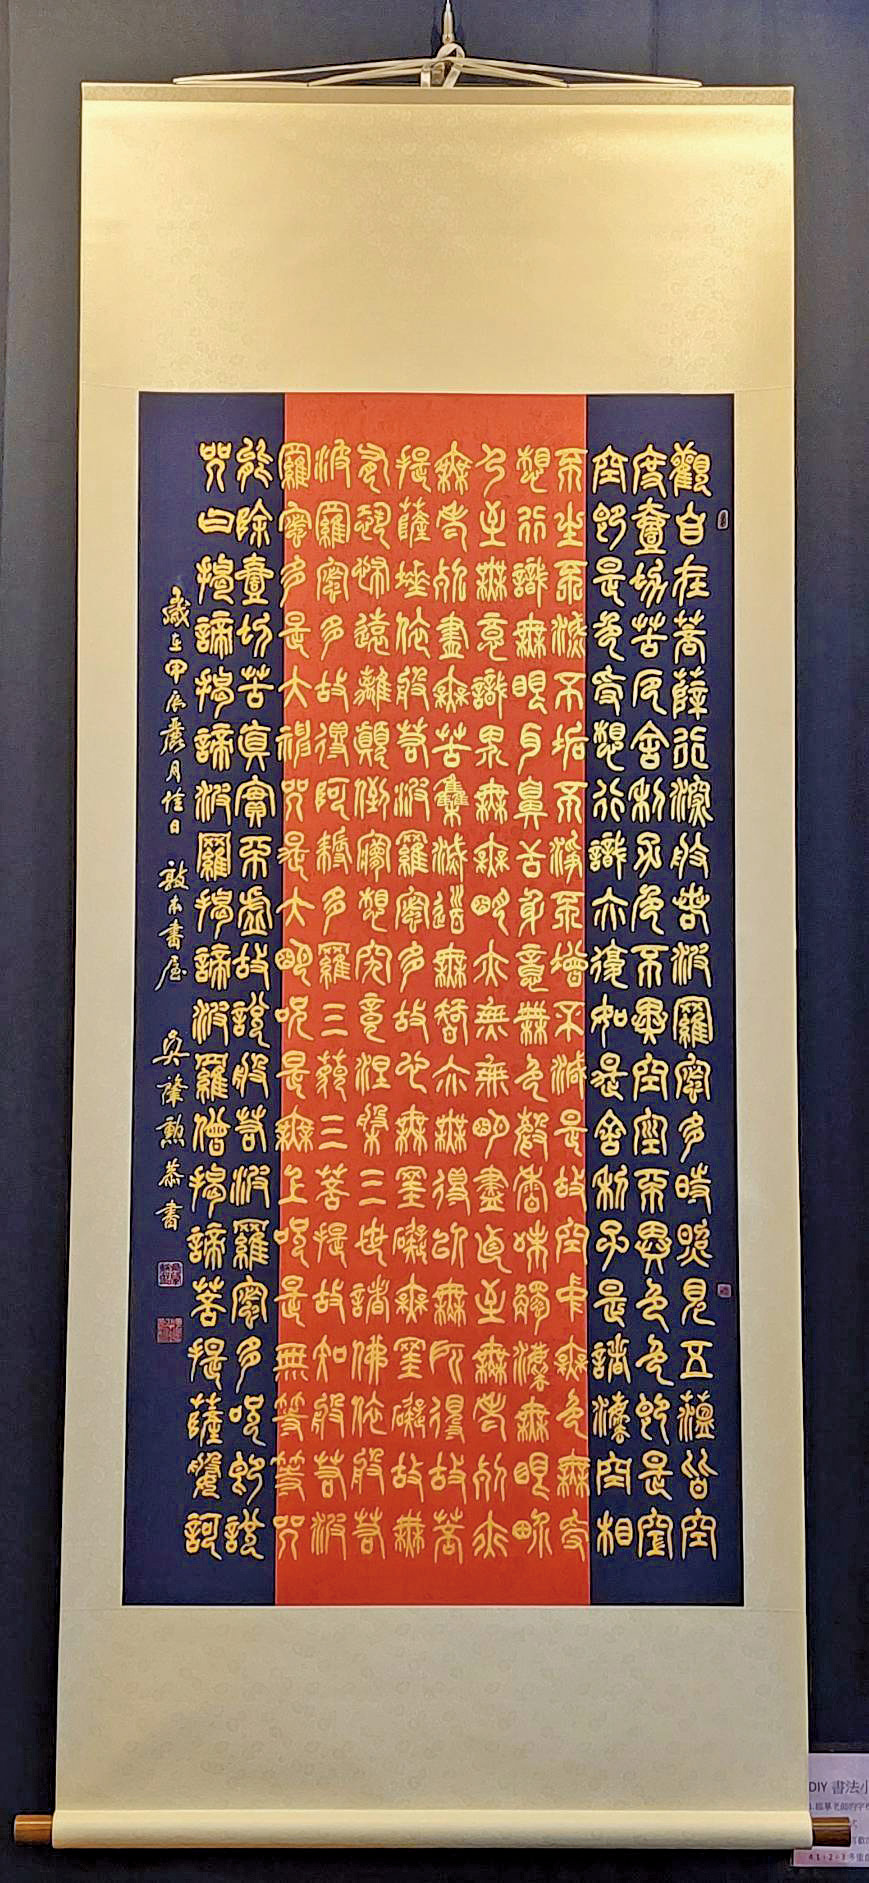 觀自在菩薩行深般若波羅蜜多時照見五蘊皆空
度壹切苦厄舍利子色不異空空不異色色即是空
空即是色受想行識亦復如是舍利子是諸法空相
不生不滅不垢不淨不增不減是故空中無色無受
想行識無眼耳鼻舌身意無色聲香味觸法無眼界
乃至無意識界無無明亦無無明盡乃至無老死亦
無老死盡無苦集滅道無智亦無得以無所得故菩
提薩埵依般若波羅蜜多故心無罣礙無罣礙故無
有恐怖遠離顛倒夢想究竟涅槃三世諸佛依般若
波羅蜜多故得阿耨多羅三藐三菩提故知般若波
羅蜜多是大神咒是大明咒是無上咒是無等等咒
能除壹切苦真實不虛故說般若波羅蜜多咒即說
咒曰揭諦揭諦波羅揭諦波羅僧揭諦菩提薩婆訶
歲在甲辰 月佳日 敦本書屋 吳肇勲恭書
DIY 書法小